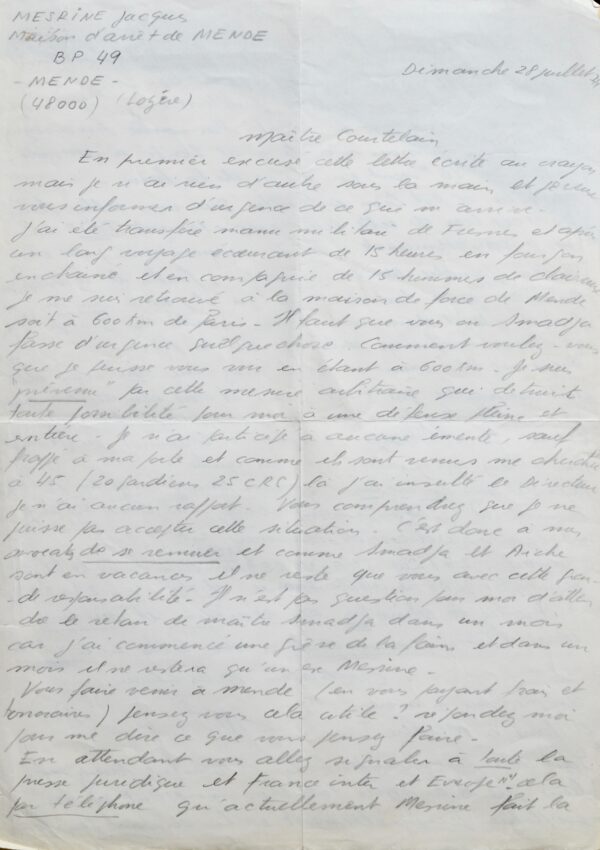 MESRINE Jacques
Maison d'arrêt de MENDE
BP 49
- MENDE -
(48000) (Lozère)
Dimanche 28 juillet 74
Maître Courtelain
En premier excuse cette lettre écrite au crayon
mais je n'ai rien d'autre sous la main et je veux
vous informer d'urgence de ce qui m'arrive.
J'ai été transféré manu militari de Fresnes et après
un long voyage écoeurant de 15 heures en fourgon
enchainé et en compagnie de 15 hommes de
je me suis retrouvé à la maison de force de Mende
soit à 600 km de Paris - Il faut que vous ou Smadja
fasse d'urgence quelque chose. Comment voulez-vous
que je puisse vous voir en étant à 600 km. Je suis
"prévenu" par cette mesure arbitraire qui détruit
toute possibilité pour moi à une défense pleine et
entière - Je n'ai participé à aucune émeute, sauf
frappé à ma porte et comme ils sont venus me chercher
à 45 (20 gardiens 25 CRS) là j'ai insulté le Directeur
je n'ai aucun rapport. Vous comprendrez que je ne
puisse pas accepter cette situation. C'est donc à mes
avocats de se remuer et comme Smadja et Aiche
sont en vacances il ne reste que vous avec cette gran-
-de responsabilité - Il n'est pas question pour moi d'atten
dre le retour de maître Smadja dans un mois
car j'ai commencé une grève de la faim et dans un
mois il ne restera qu'un ex Mesrine -
Vous faire venir à mende (en vous payant frais et
honoraires) pensez vous cela utile ? répondez moi
pour me dire ce que vous pensez faire -
En attendant vous allez signaler à toute la
presse juridique et France inter et Europe N°1 cela
par téléphone qu'actuellement Mesrine fait la